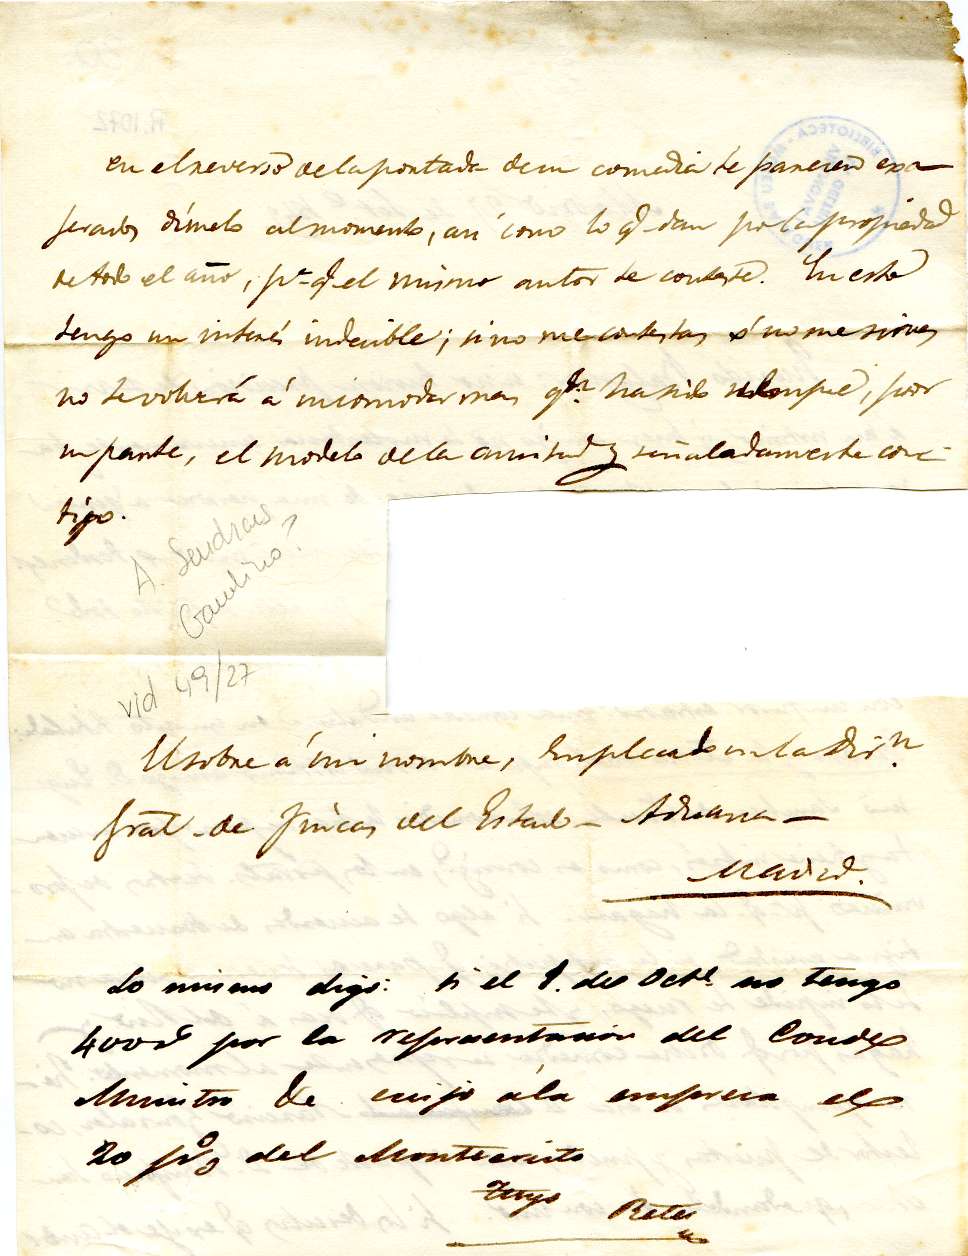 en el reverso de la portada de un comedia te parecen exa-
gerados dímelo al momento, así como lo q.e dan por la propiedad
de todo el año, p.a q.e el mismo autor te conteste. En esto
tengo un interés indecible; si no me contestas ó no me sirves
no te volverá á incomodar mas q.n ha sido siempre, por
su parte, el modelo de la amistad y señaladamente con-
tigo.
A. Sendras
Gamlino?
vid 49/27
El sobre á mi nombre, Empleado en la Dir.n
gral de fincas del Estado - Aduana -
Madrid.
Lo mismo digo: si el 1.º de Oct.e no tengo
4000 r por la representacion del Conde
Ministro de exijo á la empresa el
20 p% del Montecristo
Tuyo
Retes
R.1072
BIBLIOTECA